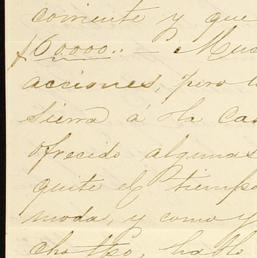 corriente y que
$60000.. — Muc
acciones, pero l
Sierra á la Cas
ofrecido algunas
quite el tiempo
moda, y como y
hablo